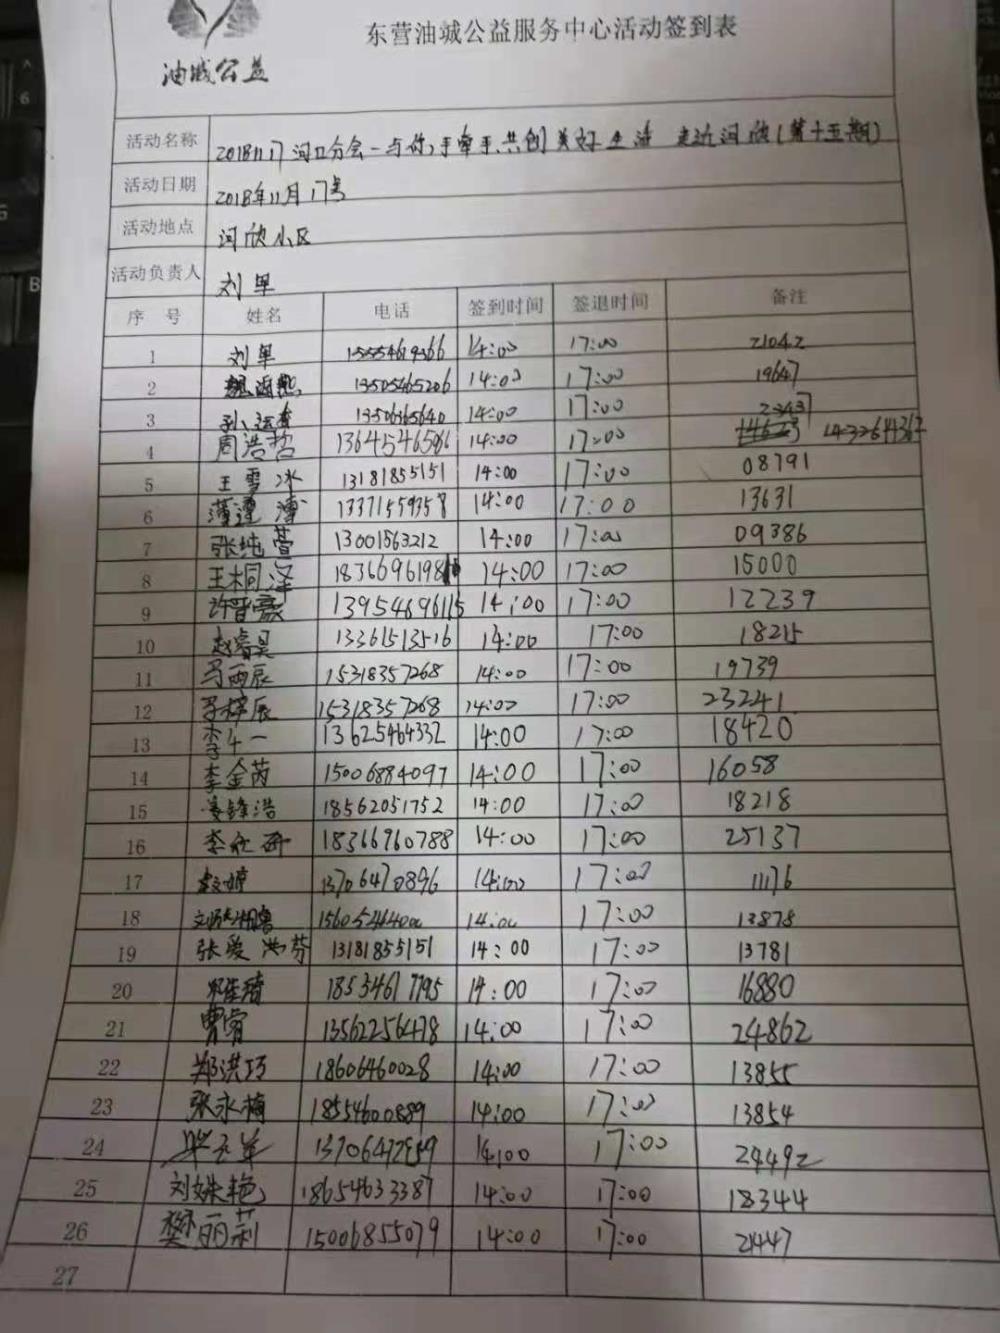 油城公益
东营油城公益服务中心活动签到表
活动名称 20181117 河口分会-与你,手牵手,共创美好生活 走近河欣(第十五期)
活动日期 2018年11月17号
活动地点 河欣小区
活动负责人 刘单
序 号 姓名 电话 签到时间 签退时间 备注
1 刘单 15554619366 14:00 17:00 21042
2 13505465206 14:00 17:00 19647
3 孙运香 13506365640 14:00 17:00 2343
4 周浩哲 13645465 14:00 17:00
5 王雪冰 13181855151 14:00 17:00 08791
6 薄 13371559358 14:00 17:00 13631
7 张纯萱 13001563212 14:00 17:00 09386
8 王桐泽 183669619 14:00 17:00 15000
9 许晋豪 13954696115 14:00 17:00 12239
10 赵睿昊 13361513516 14:00 17:00 18215
11 马西辰 15318357268 14:00 17:00 19739
12 马梓辰 15318357268 14:00 17:00 23241
13 李一 13625464332 14:00 17:00 18420
14 李金芮 15006884097 14:00 17:00 16058
15 姜锋浩 18562051752 14:00 17:00 18218
16 李欣研 18366960788 14:00 17:00 25137
17 13706470896 14:00 17:00 11176
18 17:00 13878
19 张爱 洪芬 13181855151 14:00 17:00 13781
20 邓佳琦 18534617795 14:00 17:00 16880
21 曹 13562256478 14:00 17:00 24862
22 郑洪巧 18606460028 14:00 17:00 13855
23 张永梅 18554600889 14:00 17:00 13854
24 14:00 17:00 24492
25 刘姝艳 18654633387 14:00 17:00 18344
26 樊丽莉 15006855079 14:00 17:00 21447
27